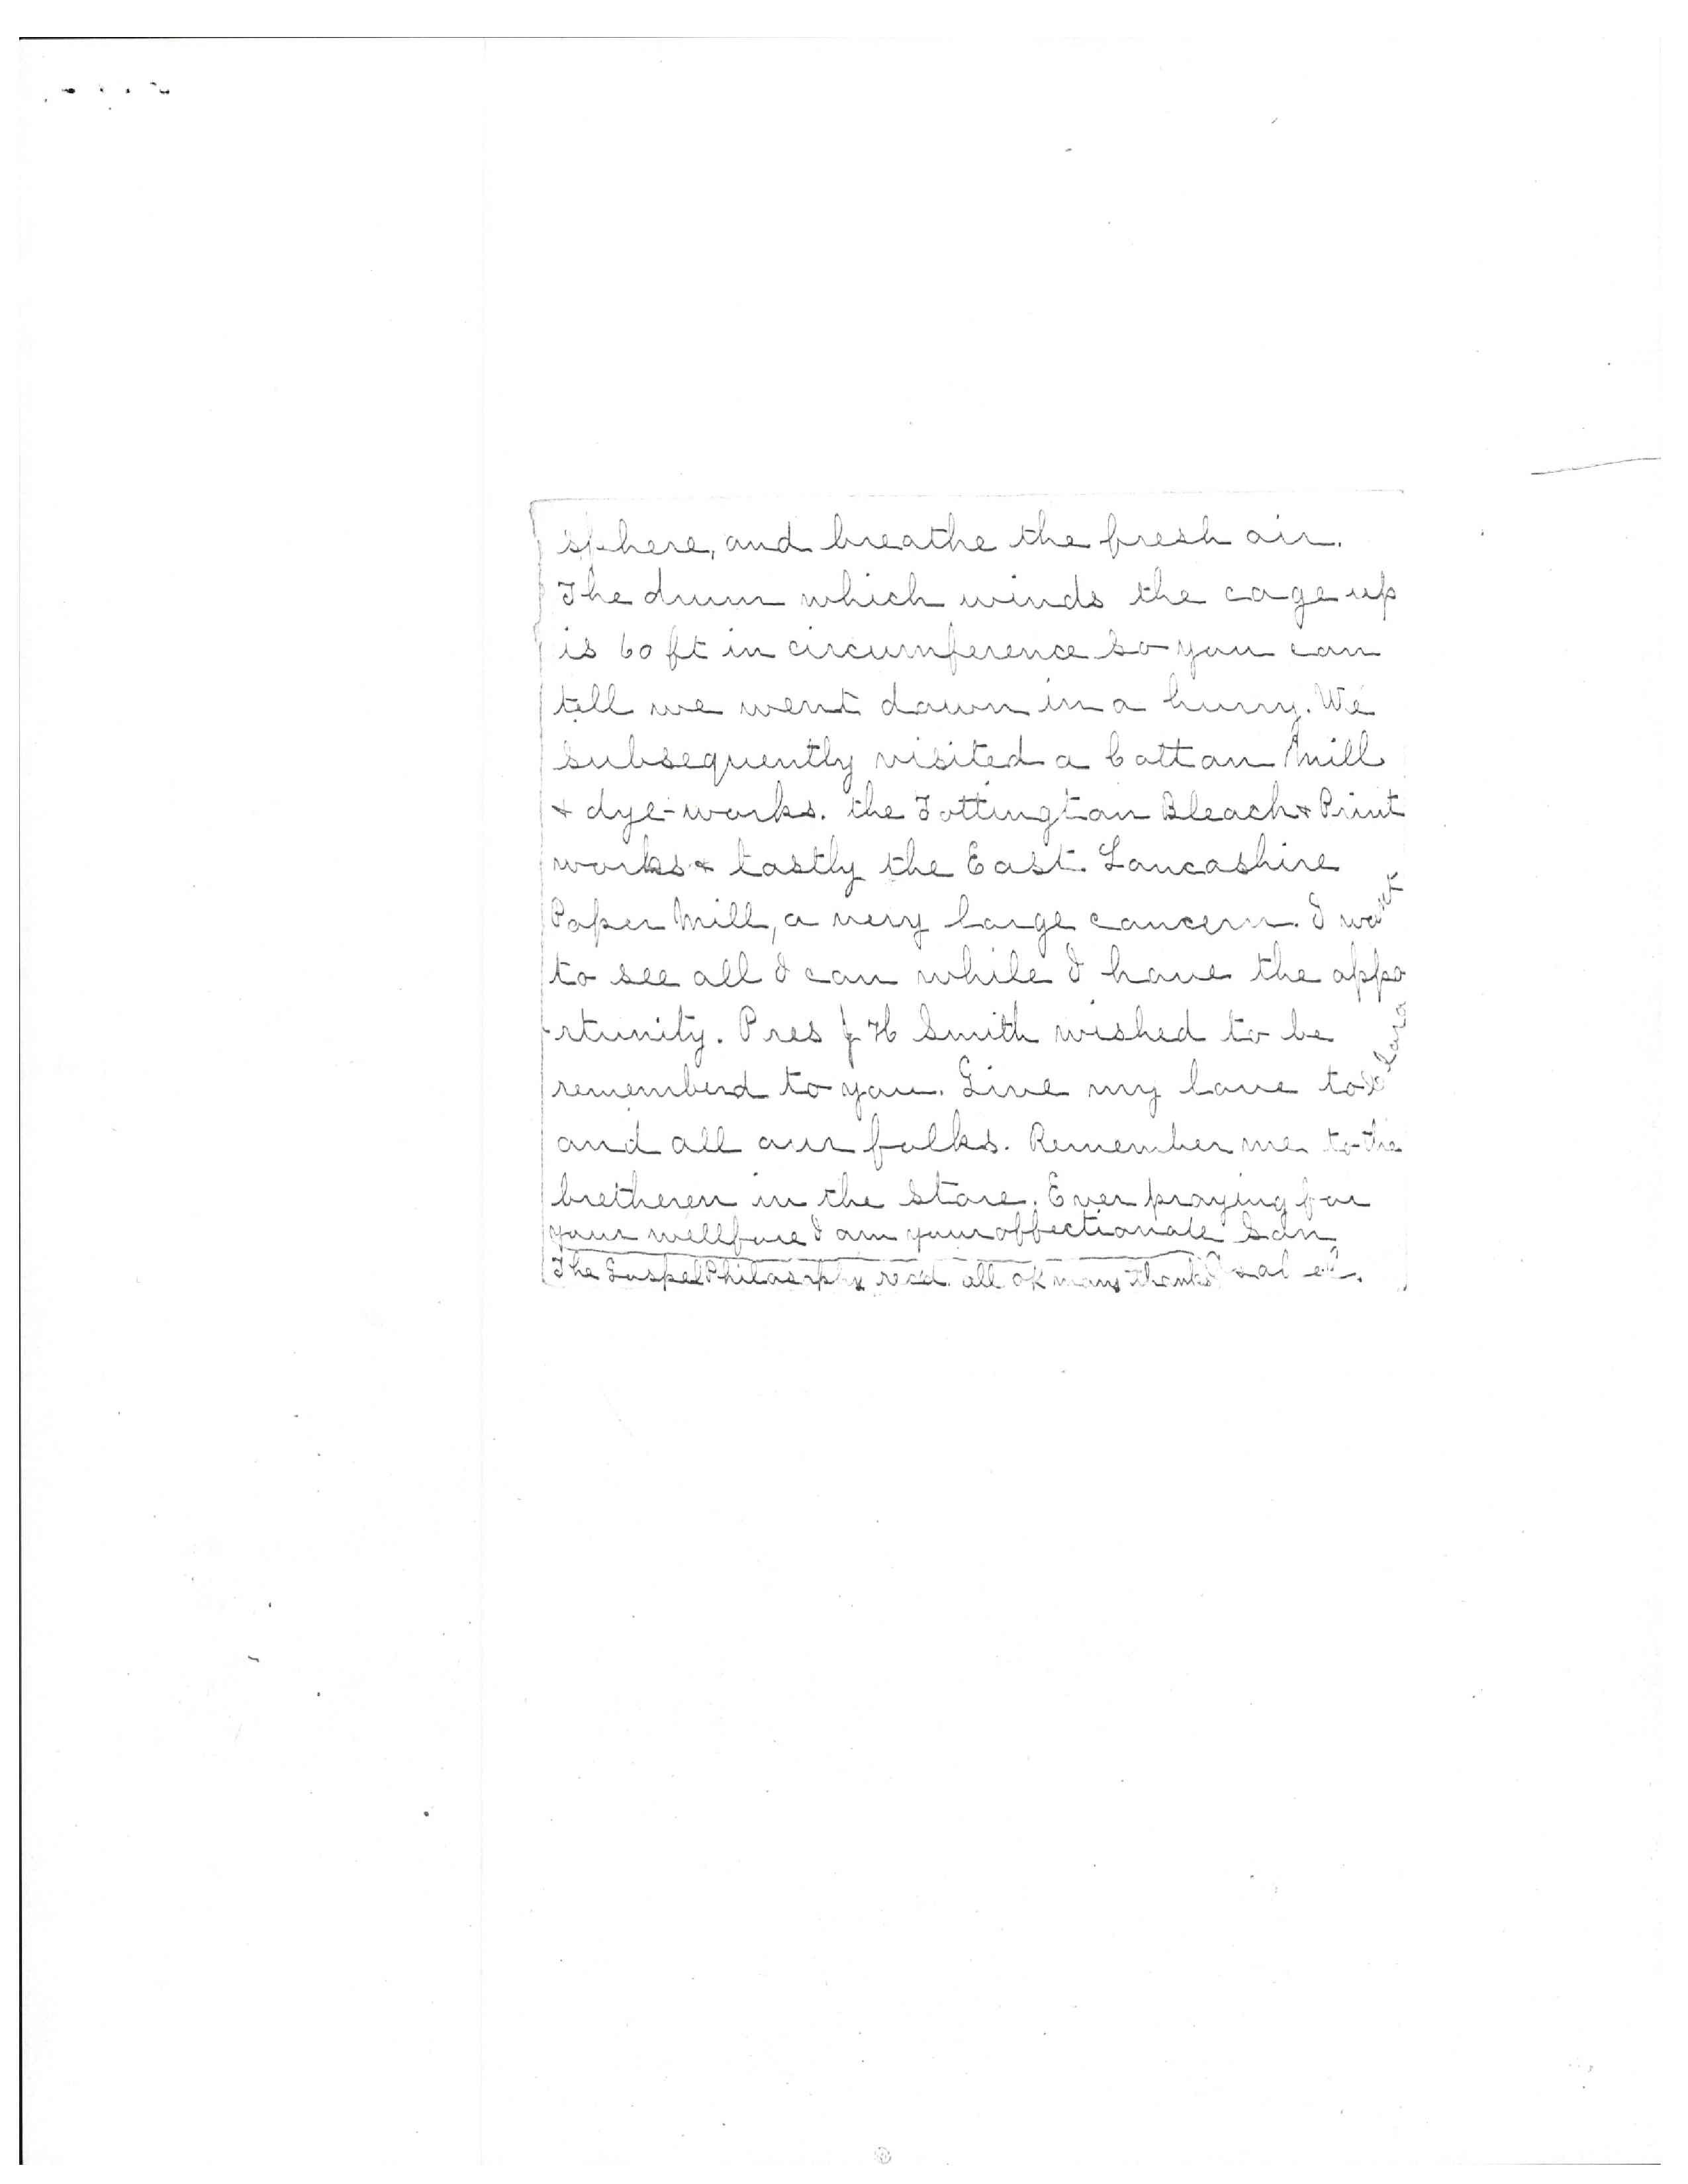 sphere, and breathe the fresh air.
The drum which winds the cage up
is 60 ft in circumference so you can
tell we went down in a hurry. We
subsequently visited a Cotton Mill
& dye-works. the Tottington Bleach & Print
works & lastly the East Lancashire
Paper Mill, a very large concern. I want
to see all I can while I have the oppo
-rtunity. Pres J H Smith wished to be
rememberd to you. Give my love to Clara
and all our folks. Remember me to the
bretheren in the store. Ever praying for
your wellfare I am your affectionate Son
The Gospel Philosophy recd. all ok many thanks